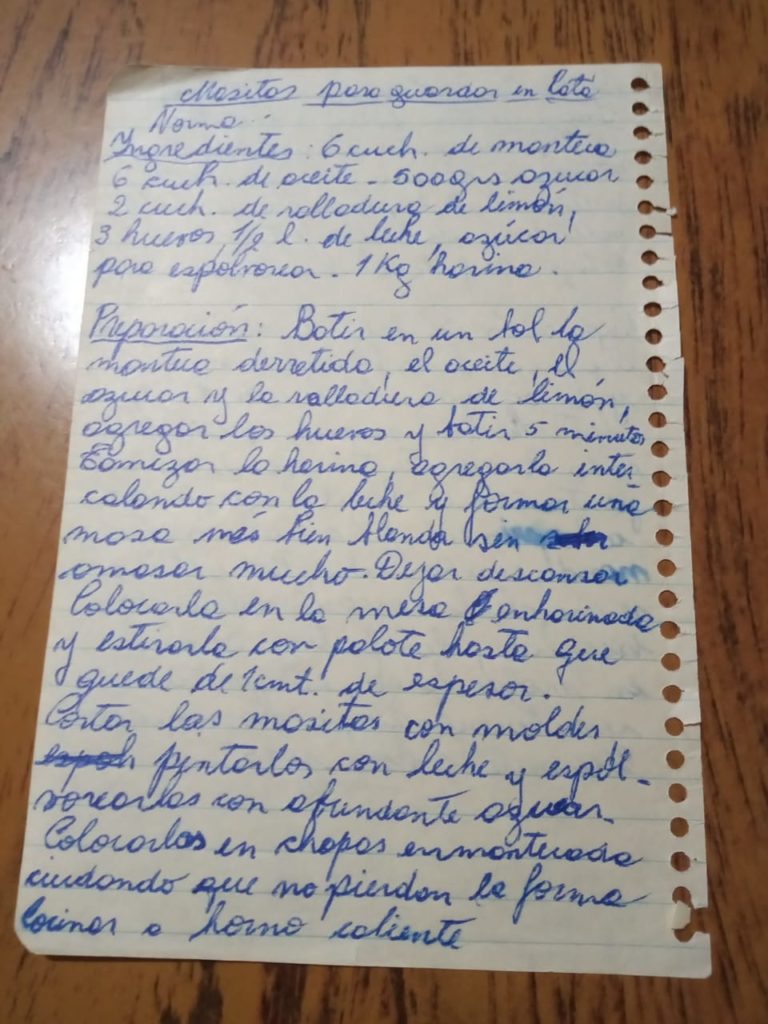 Masitas para guardar en lata
Norma:
Ingredientes: 6 cuch. de manteca
6 cuch. de aceite - 500grs azucar
2 cuch. de ralladura de limón,
3 huevos, 1/2 l. de leche, azúcar
para espolvorear - 1 Kg harina.
Preparación: Batir en un bol la
manteca derretida, el aceite, el
azucar y la ralladura de limón,
agregar los huevos y batir 5 minutos
Tamizar la harina, agregarla inter
calando con la leche y formar una
masa más bien blanda sen
amasar mucho. Dejar descansar
Colocarla en la mesa enharinada
y estirarla con palote hasta que
quede de 1cmt. de espesor.
Cortar las masitas con moldes
pintarlas con leche y espol-
vorearlas con abundante azucar.
Colocarlas en chapas enmantecada
cuidando que no pierdan la forma
Cocinar a horno caliente